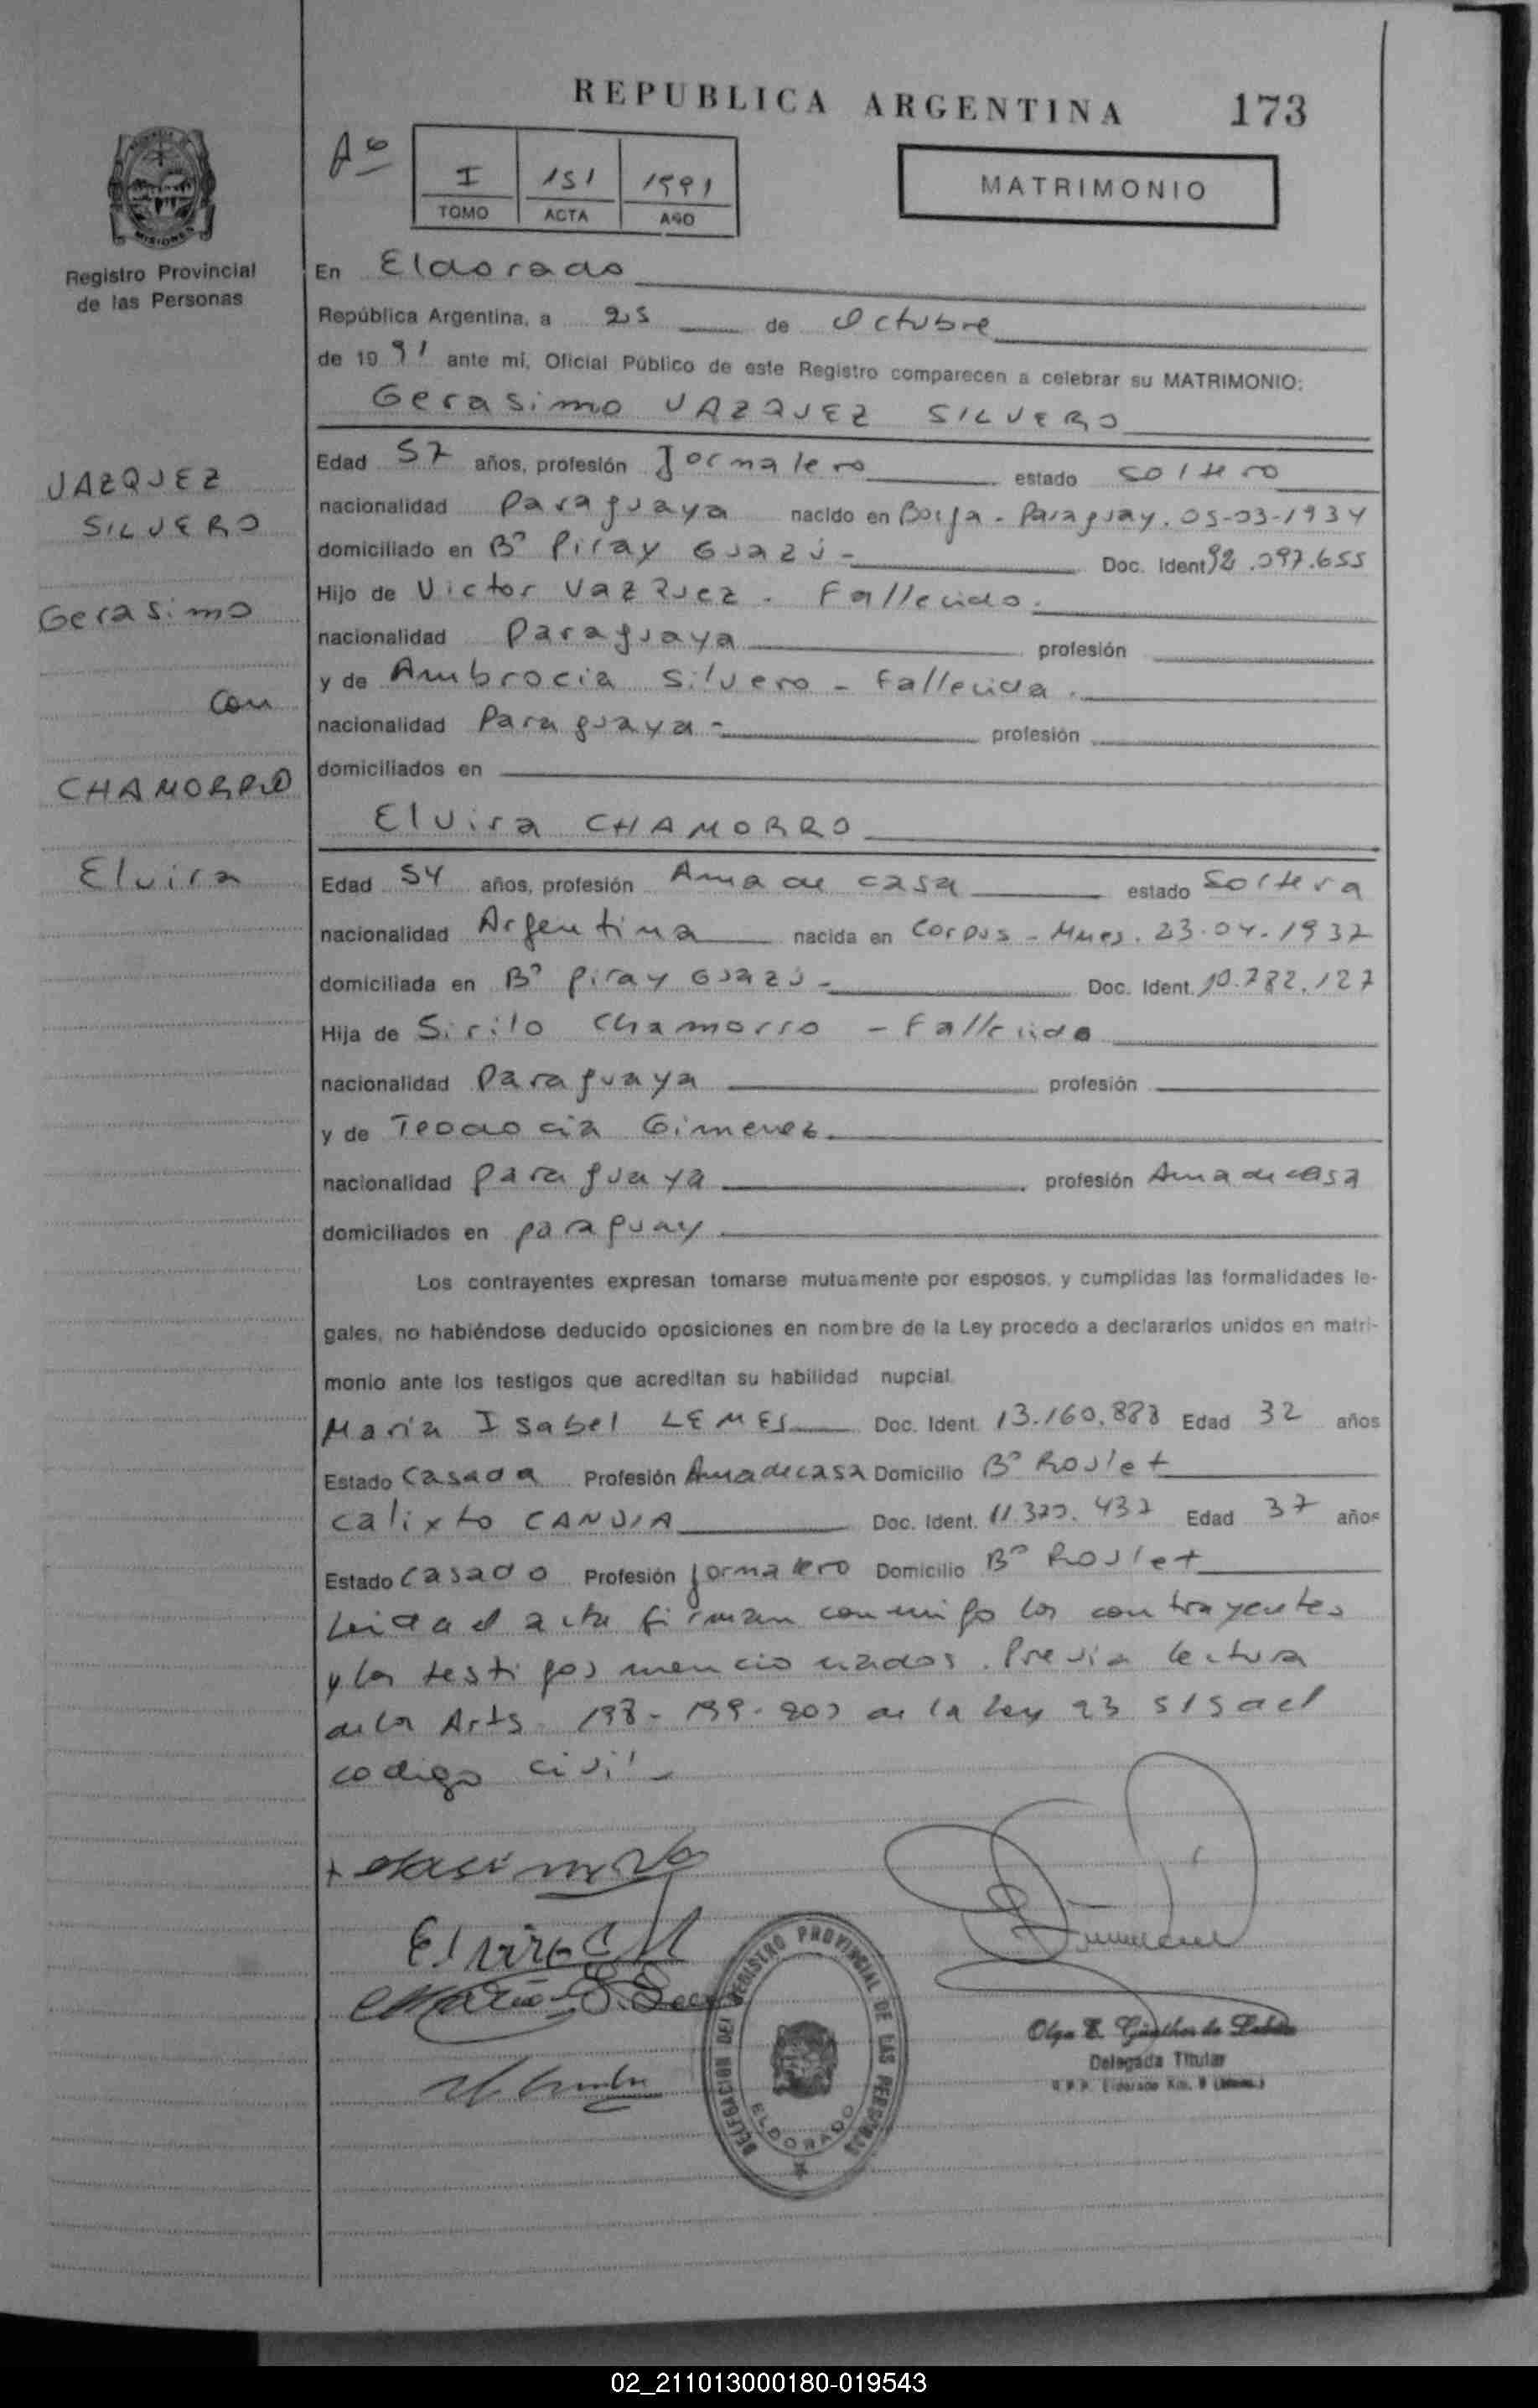 REPUBLICA ARGENTINA 173
Aº
I 151 1991
TOMO ACTA AÑO
MATRIMONIO
MISIONES
Registro Provincial
de las Personas
En Eldorado
República Argentina, a 25 de Octubre
de 1991 ante mí, Oficial Público de este Registro comparecen a celebrar su MATRIMONIO:
Gerasimo VAZQUEZ SILVERO
VAZQUEZ
SILVERO
Gerasimo
con
CHAMORRO
Elvira
Edad 57 años, profesión Jornalero estado soltero
nacionalidad Paraguaya nacido en Borja - Paraguay. 05-03-1934
domiciliado en Bº Piray Guazú - Doc. Ident 92.097.655
Hijo de Victor Vazquez - Fallecido.
nacionalidad Paraguaya profesión
y de Ambrocia Silvero - Fallecida.
nacionalidad Paraguaya - profesión
domiciliados en
Elvira CHAMORRO
Edad 54 años, profesión Ama de casa estado Soltera
nacionalidad Argentina nacida en Corpus - Mnes. 23-04-1937
domiciliada en Bº Piray Guazú - Doc. Ident. 10.782.127
Hija de Sirilo Chamorro - Fallecido
nacionalidad Paraguaya profesión
y de Teodocia Gimenez
nacionalidad paraguaya profesión Ama de casa
domiciliados en paraguay
Los contrayentes expresan tomarse mutuamente por esposos, y cumplidas las formalidades le-
gales, no habiéndose deducido oposiciones en nombre de la Ley procedo a declararlos unidos en matri-
monio ante los testigos que acreditan su habilidad nupcial
Maria Isabel LEMES Doc. Ident. 13.160.883 Edad 32 años
Estado Casada Profesión Ama de casa Domicilio Bº Roulet
Calixto CANDIA Doc. Ident. Edad 37 años
Estado Casado Profesión jornalero Domicilio Bº Roulet
Leida el acta firman conmigo los contrayentes
y los testigos mencionados. Previa lectura
de los Arts. 198-199-200 de la Ley 23 515 del
codigo civil
Elvira Ch
DELEGACION DEL REGISTRO PROVINCIAL DE LAS PERSONAS
ELDORADO
Olga E. Günther de
Delegada Titular
R.P.P. Eldorado Km. 9 (Mnes.)
02_211013000180-019543